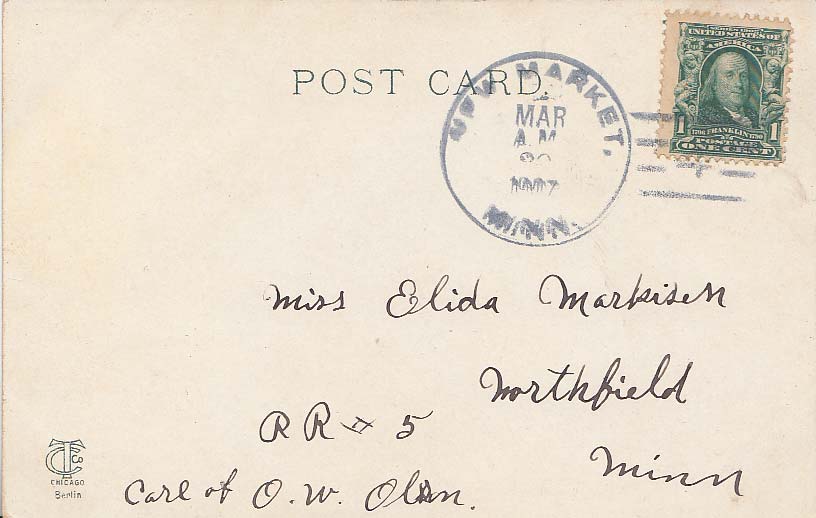 POST CARD.
NEW MARKET,
MAR
A.M.
1907
MINN.
SERIES 1902
UNITED STATES OF
AMERICA
1 1706 FRANKLIN 1790 1
POSTAGE
ONE CENT
Miss Elida Markisen
Northfield
RR # 5
Minn
Care of O. W. Olsen.
TC Co
CHICAGO
Berlin